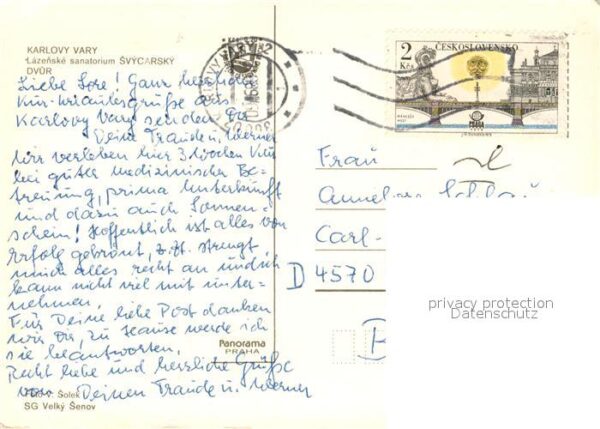 KARLOVY VARY
Lázeňské sanatorium ŠVÝCARSKÝ
DVŮR
Liebe Lore! Ganz herzliche
Kur-Urlaubsgrüße aus
Karlovy Vary senden Dir
Deine Traude u. Werner
Wir verleben hier 3 Wochen Kur
bei guter medizinischer Be-
treuung, prima Unterkunft
und dazu auch Sonnen-
schein! Hoffentlich ist alles von
Erfolg gekrönt, z.Zt. strengt
mich alles recht an und ich
kann nicht viel mit unter-
nehmen.
Für Deine liebe Post danken
wir Dir, zu Hause werde ich
sie beantworten.
Recht liebe und herzliche Grüße
von Deinen Traude u. Werner
Foto: V. Šolek
SG Velký Šenov
Panorama
PRAHA
2 Kčs
ČESKOSLOVENSKO
PRAGA
Frau
Carl-
D 4570
privacy protection
Datenschutz